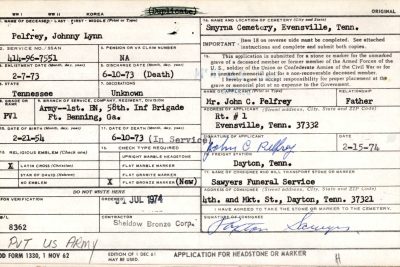 WW I
WW II
KOREA
(Duplicate)
ORIGINAL
NAME OF DECEASED - LAST - FIRST - MIDDLE (Print or Type)
Pelfrey, Johnny Lynn
SERVICE NO./SSAN
414-96-7551
PENSION OR VA CLAIM NUMBER
NA
ENLISTMENT DATE (Month, day, year)
2-7-73
DISCHARGE DATE (Month, day, year)
6-10-73 (Death)
STATE
Tennessee
Unknown
GRADE
PV1
BRANCH OF SERVICE, COMPANY, REGIMENT, DIVISION
Army--1st. BN, 58th. Inf Brigade
Ft. Benning, Ga.
DATE OF BIRTH (Month, day, year)
2-21-54
DATE OF DEATH (Month, day, year)
6-10-73 (In Service)
RELIGIOUS EMBLEM (Check one)
X LATIN CROSS (Christian)
STAR OF DAVID (Hebrew)
NO EMBLEM
CHECK TYPE REQUIRED
UPRIGHT MARBLE HEADSTONE
FLAT MARBLE MARKER
FLAT GRANITE MARKER
X FLAT BRONZE MARKER (New)
DO NOT WRITE HERE
JUL 1974
8362
Sheldow Bronze Corp.
PVT US ARMY
NAME AND LOCATION OF CEMETERY (City and State)
Smyrna Cemetery, Evensville, Tenn.
Item 18 on reverse side must be completed. See attached
instructions and complete and submit both copies.
This application is submitted for a stone or marker for the unmarked
grave of a deceased member or former member of the Armed Forces of the
U. S., soldier of the Union or Confederate Armies of the Civil War or for
memorial plot for a non-recoverable deceased member.
I hereby agree to accept responsibility for proper placement at the
grave or memorial plot at no expense to the Government.
NAME OF APPLICANT (Print or Type)
Mr. John C. Pelfrey
RELATIONSHIP
Father
Rt. # 1
Evensville, Tenn. 37332
SIGNATURE OF APPLICANT
John C Pelfrey
DATE
2-15-74
FREIGHT STATION
Dayton, Tenn.
Sawyers Funeral Service
4th. and Mkt. St., Dayton, Tenn. 37321
SIGNATURE OF CONSIGNEE
DD FORM 1330, 1 NOV 62
EDITION OF 1 DEC 61
MAY BE USED.
APPLICATION FOR HEADSTONE OR MARKER
H